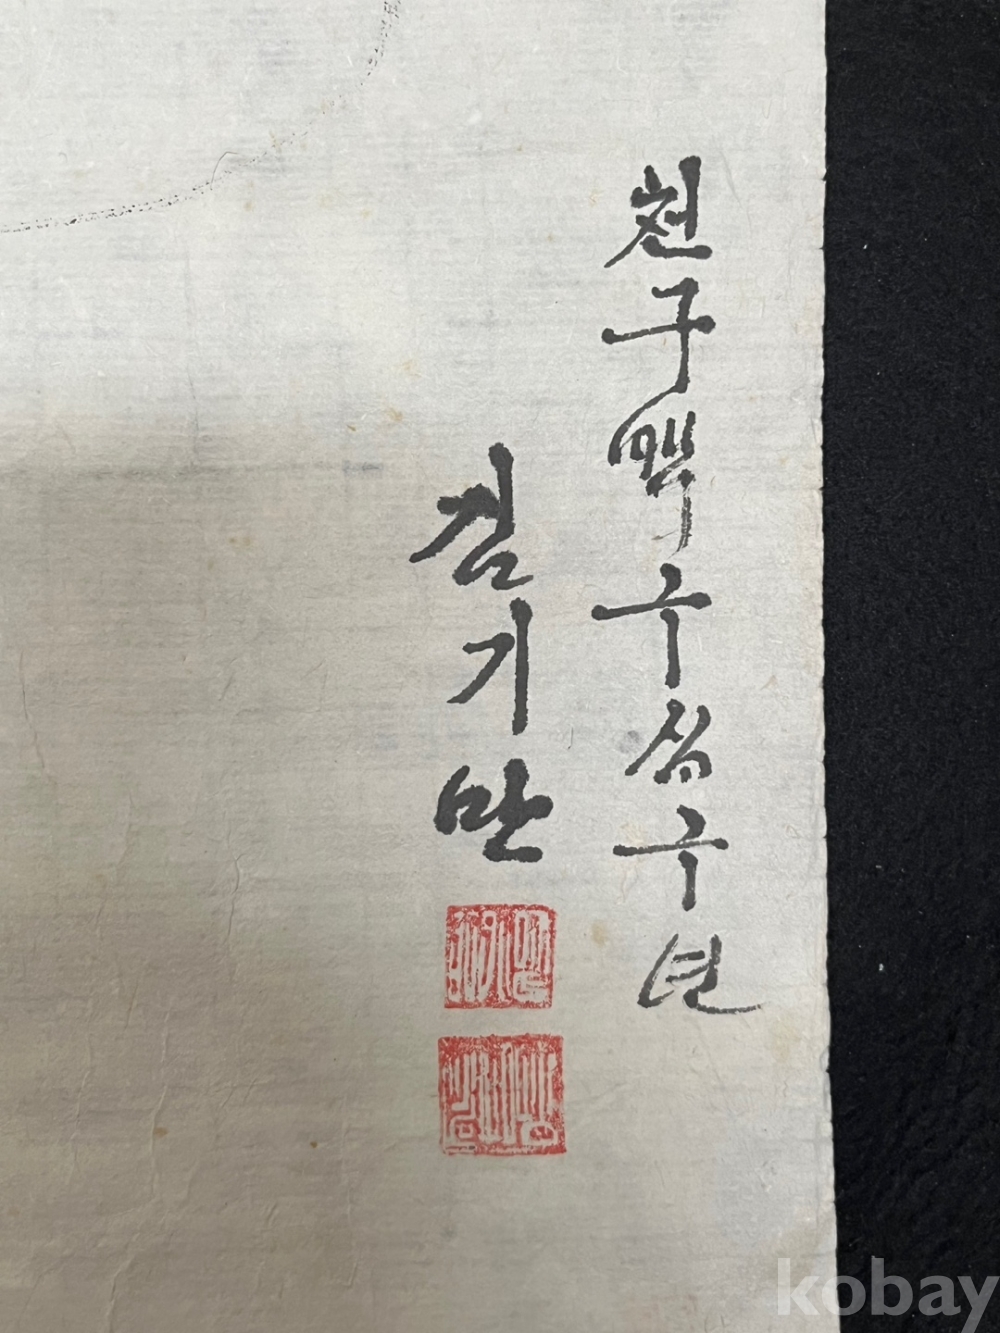 천구백구십구년
김기만
kobay